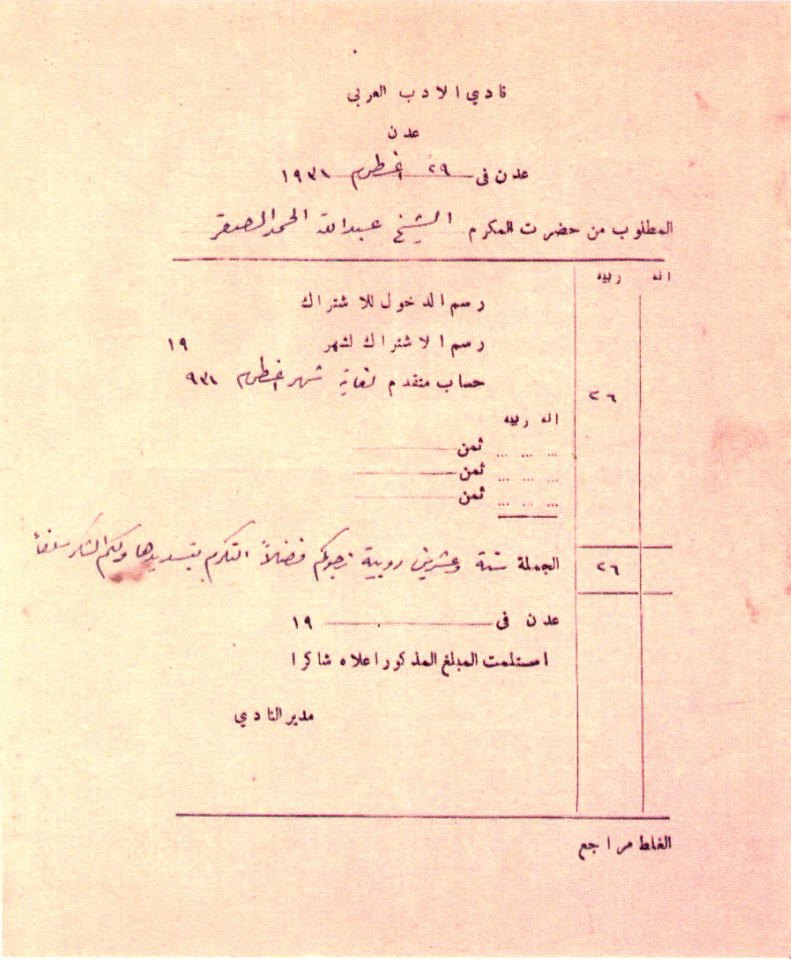 نادي الادب العربي
عدن
عدن فى ٢٩ اغسطس ١٩٣١
المطلوب من حضرت المكرم الشيخ عبدالله الحمد الصقر
انه ربيه
رسم الدخول للاشتراك
رسم الاشتراك لشهر ١٩
حساب متقدم لغاية شهر اغسطس ٩٣١ ٢٦
انه ربيه
... ... ... ثمن
... ... ... ثمن
... ... ... ثمن
الجملة ستة وعشرين روبية نرجوكم فضلاً التكرم بتسديدها ولكم الشكر سلفاً ٢٦
عدن فى ١٩
استلمت المبلغ المذكور اعلاه شاكرا
مدير النادي
الغلط مراجع